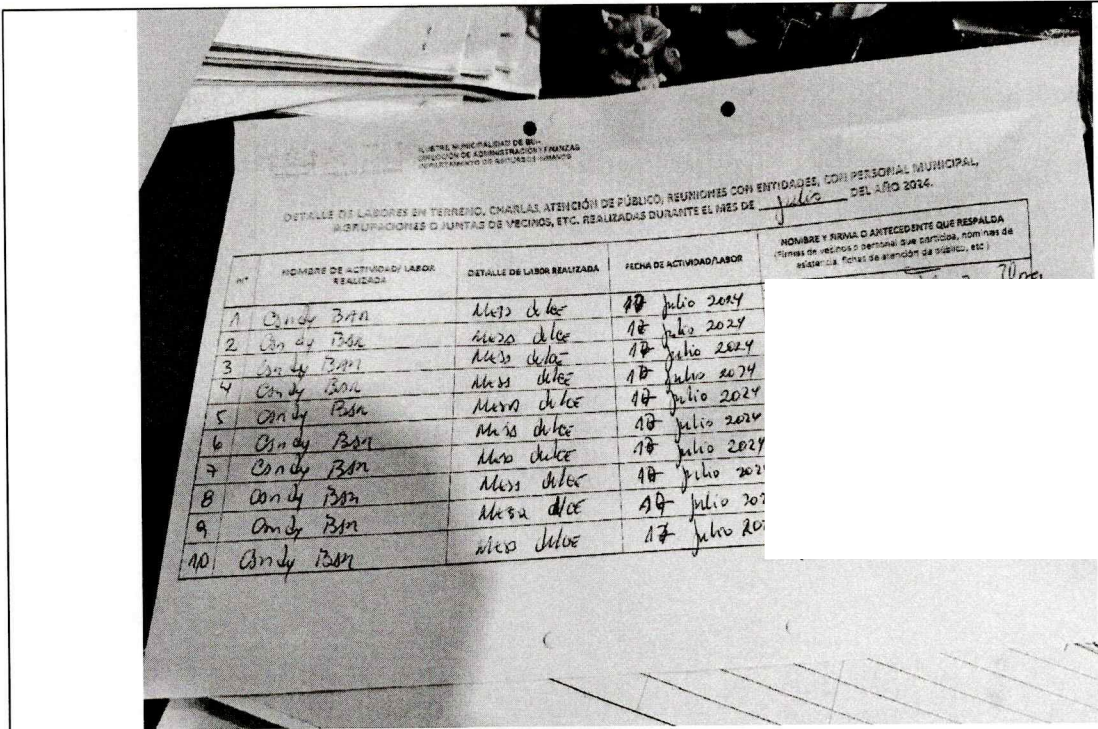 ILUSTRE MUNICIPALIDAD DE
DIRECCIÓN DE ADMINISTRACIÓN Y FINANZAS
DEPARTAMENTO DE RECURSOS HUMANOS
DETALLE DE LABORES EN TERRENO, CHARLAS, ATENCIÓN DE PÚBLICO, REUNIONES CON ENTIDADES, CON PERSONAL MUNICIPAL,
AGRUPACIONES O JUNTAS DE VECINOS, ETC. REALIZADAS DURANTE EL MES DE julio DEL AÑO 2024.
N° NOMBRE DE ACTIVIDAD/ LABOR REALIZADA DETALLE DE LABOR REALIZADA FECHA DE ACTIVIDAD/LABOR NOMBRE Y FIRMA O ANTECEDENTE QUE RESPALDA
(Firmas de vecinos o personal que participa, nominas de
asistencia, fichas de atención de público, etc)
1 Candy Bar Mesa dulce 17 julio 2024
2 Candy Bar Mesa dulce 17 julio 2024
3 Candy Bar Mesa dulce 17 julio 2024
4 Candy Bar Mesa dulce 17 julio 2024
5 Candy Bar Mesa dulce 17 julio 2024
6 Candy Bar Mesa dulce 17 julio 2024
7 Candy Bar Mesa dulce 17 julio 2024
8 Candy Bar Mesa dulce 17 julio 202
9 Candy Bar Mesa dulce 17 julio 202
10 Candy Bar Mesa dulce 17 julio 202